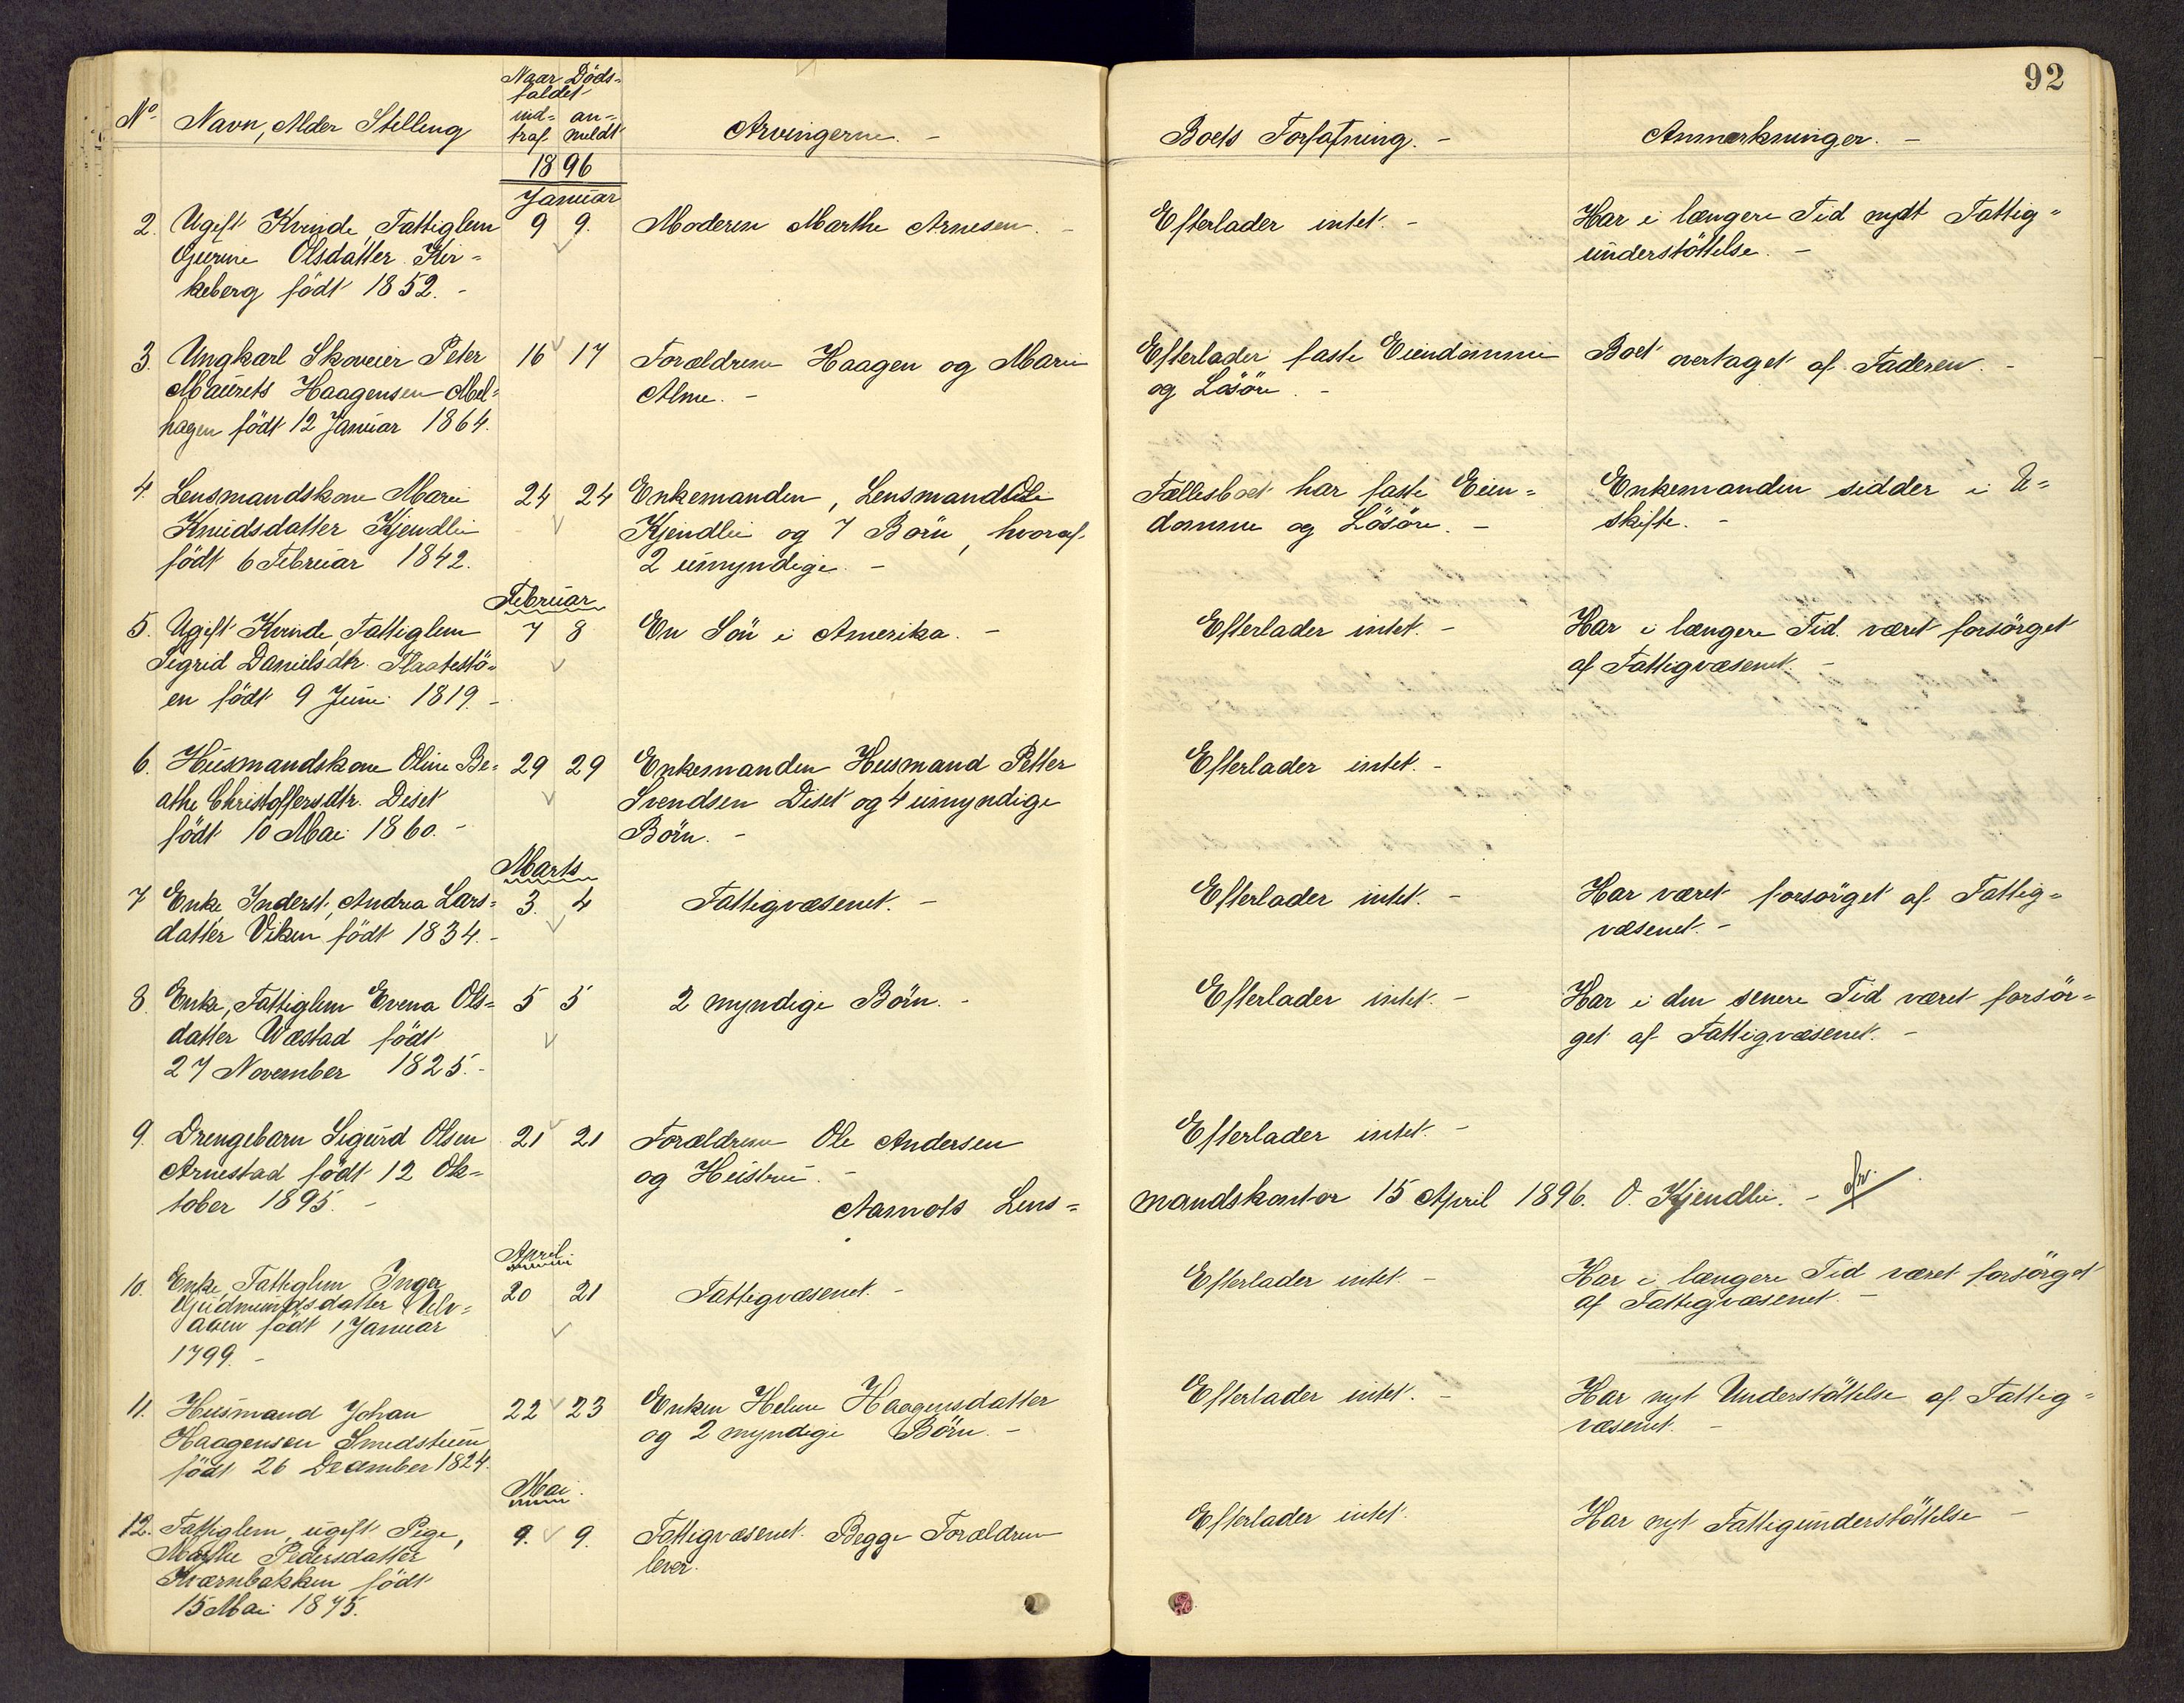 92
Naar Døds-
faldet
ind- an-
No. Navn, Alder Stilling traf meldt Arvingerne. - Boets Forfatning. - Anmærkninger. -
1896
Januar
2. Ugift Kvinde, Fattiglem 9 9. Moderen Marthe Arnesen. - Efterlader intet. - Har i længere Tid nydt Fattig-
Gurine Olsdatter Kir- understøttelse. -
keberg født 1852. -
3. Ungkarl Skoveier Peter 16 17 Forældrene Haagen og Marie Efterlader faste Eiendomme Boet overtaget af Faderen. -
Maurets Haagensen Mel- Alme. - og Løsøre. -
hagen født 12 Januar 1864.
4. Lensmandskone Marie 24 24 Enkemanden, Lensmand Ole Fællesboet har faste Eien- Enkemanden sidder i U-
Knudsdatter Kjendlie Kjendlie og 7 Børn, hvoraf domme og Løsøre. - skifte. -
født 6 Februar 1842. 2 umyndige. -
Februar
5. Ugift Kvinde, Fattiglem 7 8 En Søn i Amerika. - Efterlader intet. - Har i længere Tid været forsørget
Sigrid Danielsdtr. af Fattigvæsenet. -
en født 9 Juni 1819. -
6. Husmandskone Oline Be- 29 29 Enkemanden Husmand Petter Efterlader intet. -
athe Christoffersdtr. Deset Svendsen Deset og 4 umyndige
født 10 Mai 1860. - Børn. -
Marts
7 Enke Inderst, Andrea Lars- 3. 4 Fattigvæsenet. - Efterlader intet. - Har været forsørget af Fattig-
datter Viken født 1834. - væsenet. -
8. Enke, Fattiglem Evena Ols- 5 5 2 myndige Børn. - Efterlader intet. - Har i den senere Tid været forsør-
datter Wæstad født get af Fattigvæsenet. -
27 November 1825. -
9. Drengebarn Sigurd Olsen 21 21 Forældrene Ole Andersen Efterlader intet. -
Arnestad født 12 Ok- og Hustru. -
tober 1895. - Aamots Lens- mandskontor 15 April 1896. O. Kjendlie. -
April
10. Enke, Fattiglem Inger 20 21 Fattigvæsenet. - Efterlader intet. - Har i længere Tid været forsørget
Gudmundsdatter Ulv- af Fattigvæsenet. -
aaen født 1 Januar
1799. -
11. Husmand Johan 22 23 Enken Helene Haagensdatter Efterlader intet. - Har nyt Understøttelse af Fattig-
Haagensen Smedstuen og 2 myndige Børn. - væsenet. -
født 26 December 1824.
Mai.
12. Fattiglem, ugift Pige, 9. 9. Fattigvæsenet. Begge Forældrene Efterlader intet. Har nyt Fattigunderstøttelse -
Marthe Pedersdatter lever.
Kværnbakken født
15 Mai 1875.